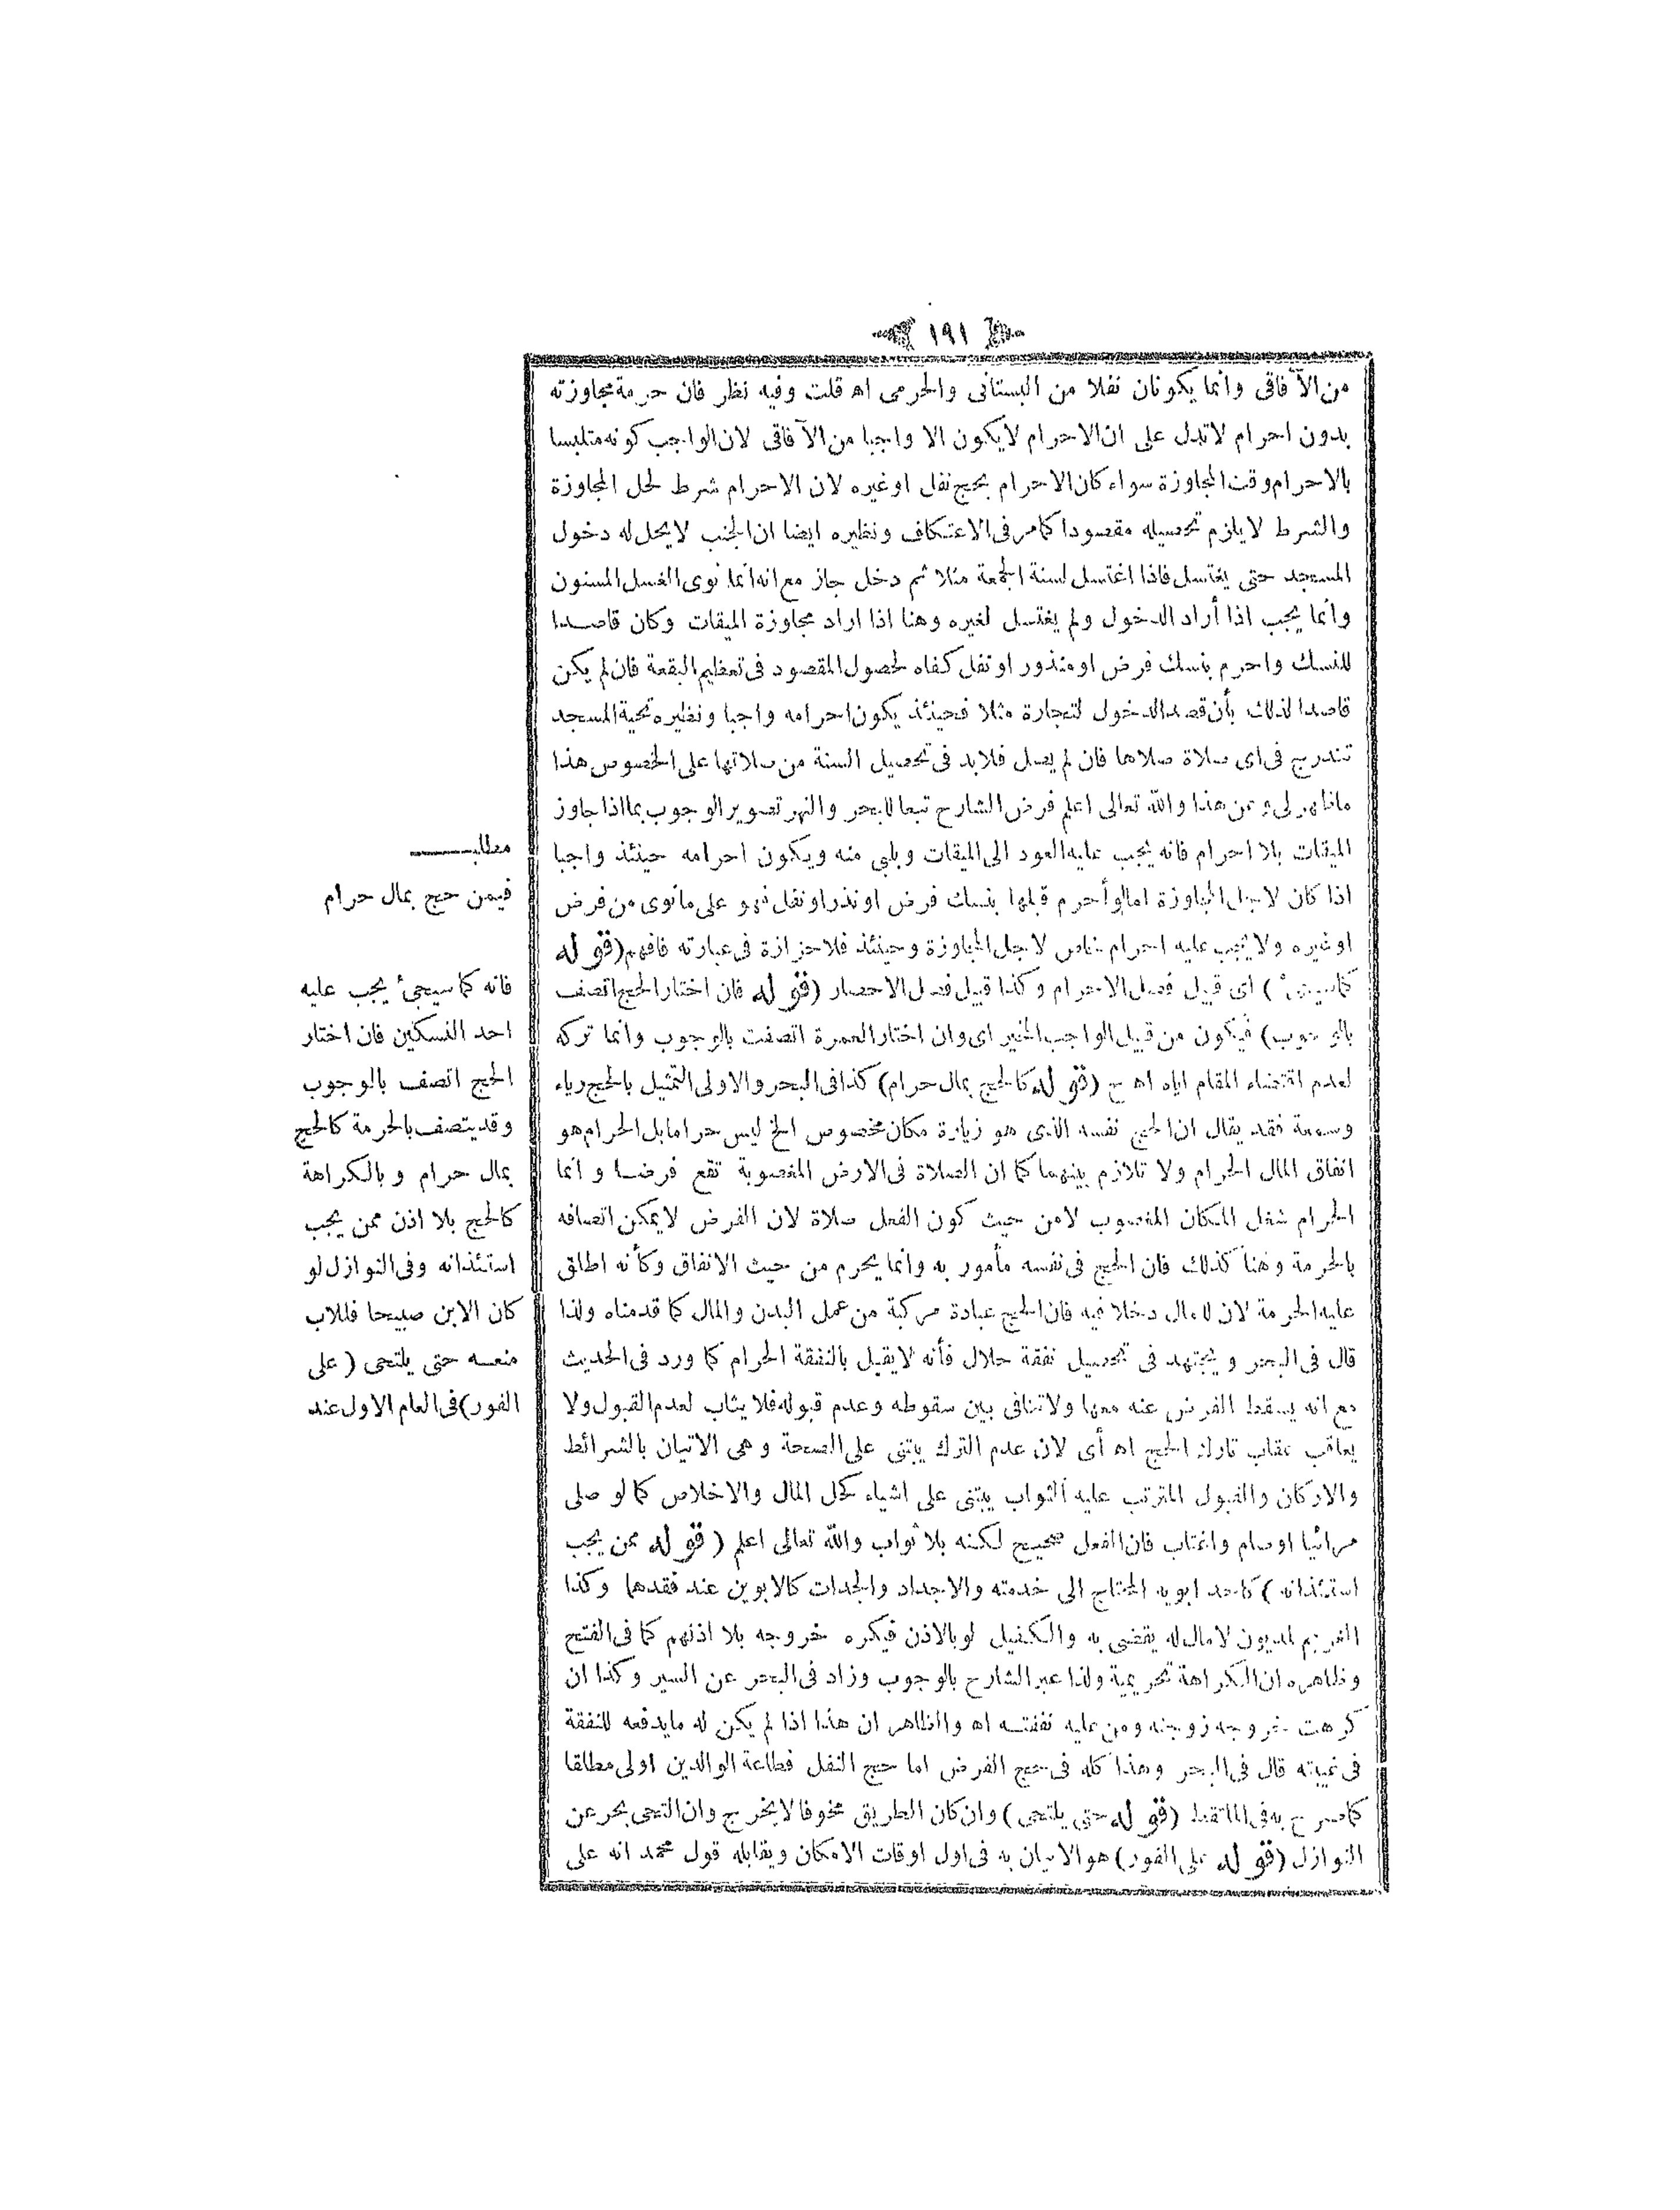 ١٩١
من الآفاقى وانما يكونان نفلا من البستانى والحرمى اه قلت وفيه نظر فان حرمة مجاوزته
بدون احرام لاتدل على ان الاحرام لايكون الا واجبا من الآفاقى لان الواجب كونه متلبسا
بالاحرام وقت المجاوزة سواء كان الاحرام بحج نفل اوغيره لان الاحرام شرط لحل المجاوزة
والشرط لايلزم تحصيله مقصودا كمامر فى الاعتكاف ونظيره ايضا ان الجنب لايحل له دخول
المسجد حتى يغتسل فاذا اغتسل لسنة الجمعة مثلا ثم دخل جاز مع انه انما نوى الغسل المسنون
وانما يجب اذا أراد الدخول ولم يغتسل لغيره وهنا اذا اراد مجاوزة الميقات وكان قاصدا
للنسك واحرم بنسك فرض اومنذور اونفل كفاه لحصول المقصود فى تعظيم البقعة فان لم يكن
قاصدا لذلك بأن قصد الدخول لتجارة مثلا فحينئذ يكون احرامه واجبا ونظيره تحية المسجد
تندرج فى اى صلاة صلاها فان لم يصل فلابد فى تحصيل السنة من صلاتها على الخصوص هذا
ماظهر لى وعن هذا والله تعالى اعلم فرض الشارح تبعا للبحر والنهر تصوير الوجوب بمااذا جاوز
الميقات بلا احرام فانه يجب عليه العود الى الميقات ويلبى منه ويكون احرامه حينئذ واجبا
اذا كان لاجل المجاوزة امالو أحرم قبلها بنسك فرض اونذر اونفل فهو على مانوى من فرض
اوغيره ولايجب عليه احرام خاص لاجل المجاوزة وحينئذ فلاحزازة فى عبارته فافهم (قوله
كماسيجىء) اى قبيل فصل الاحرام وكذا قبيل فصل الاحصار (قوله فان اختار الحج اتصف
بالوجوب) فيكون من قبيل الواجب المخير اى وان اختار العمرة اتصفت بالوجوب وانما تركه
لعدم اقتضاء المقام اياه اه ح (قوله كالحج بمال حرام) كذا فى البحر والاولى التمثيل بالحج رياء
وسمعة فقد يقال ان الحج نفسه الذى هو زيارة مكان مخصوص الخ ليس حراما بل الحرام هو
انفاق المال الحرام ولا تلازم بينهما كما ان الصلاة فى الارض المغصوبة تقع فرضا وانما
الحرام شغل المكان المغصوب لامن حيث كون الفعل صلاة لان الفرض لايمكن اتصافه
بالحرمة وهنا كذلك فان الحج فى نفسه مأمور به وانما يحرم من حيث الانفاق وكأنه اطلق
عليه الحرمة لان للمال دخلا فيه فان الحج عبادة مركبة من عمل البدن والمال كما قدمناه ولذا
قال فى البحر ويجتهد فى تحصيل نفقة حلال فأنه لايقبل بالنفقة الحرام كما ورد فى الحديث
مع انه يسقط الفرض عنه معها ولاتنافى بين سقوطه وعدم قبوله فلا يثاب لعدم القبول ولا
يعاقب عقاب تارك الحج اه أى لان عدم الترك يبتنى على الصحة وهى الاتيان بالشرائط
والاركان والقبول المترتب عليه الثواب يبتنى على اشياء كحل المال والاخلاص كما لو صلى
مرائيا اوصام واغتاب فان الفعل صحيح لكنه بلا ثواب والله تعالى اعلم (قوله ممن يجب
استئذانه) كاحد ابويه المحتاج الى خدمته والاجداد والجدات كالابوين عند فقدهما وكذا
الغريم لمديون لامال له يقضى به والكفيل لوبالاذن فيكره خروجه بلا اذنهم كما فى الفتح
وظاهره ان الكراهة تحريمية ولذا عبر الشارح بالوجوب وزاد فى البحر عن السير وكذا ان
كرهت خروجه زوجته ومن عليه نفقته اه والظاهر ان هذا اذا لم يكن له مايدفعه للنفقة
فى غيبته قال فى البحر وهذا كله فى حج الفرض اما حج النفل فطاعة الوالدين اولى مطلقا
كماصرح به فى الملتقط (قوله حتى يلتحى) وان كان الطريق مخوفا لايخرج وان التحى بحر عن
النوازل (قوله على الفور) هو الاتيان به فى اول اوقات الامكان ويقابله قول محمد انه على
مطلب
فيمن حج بمال حرام
فانه كما سيجىء يجب عليه
احد النسكين فان اختار
الحج اتصف بالوجوب
وقديتصف بالحرمة كالحج
بمال حرام وبالكراهة
كالحج بلا اذن ممن يجب
استئذانه وفى النوازل لو
كان الابن صبيحا فللاب
منعه حتى يلتحى (على
الفور) فى العام الاول عند